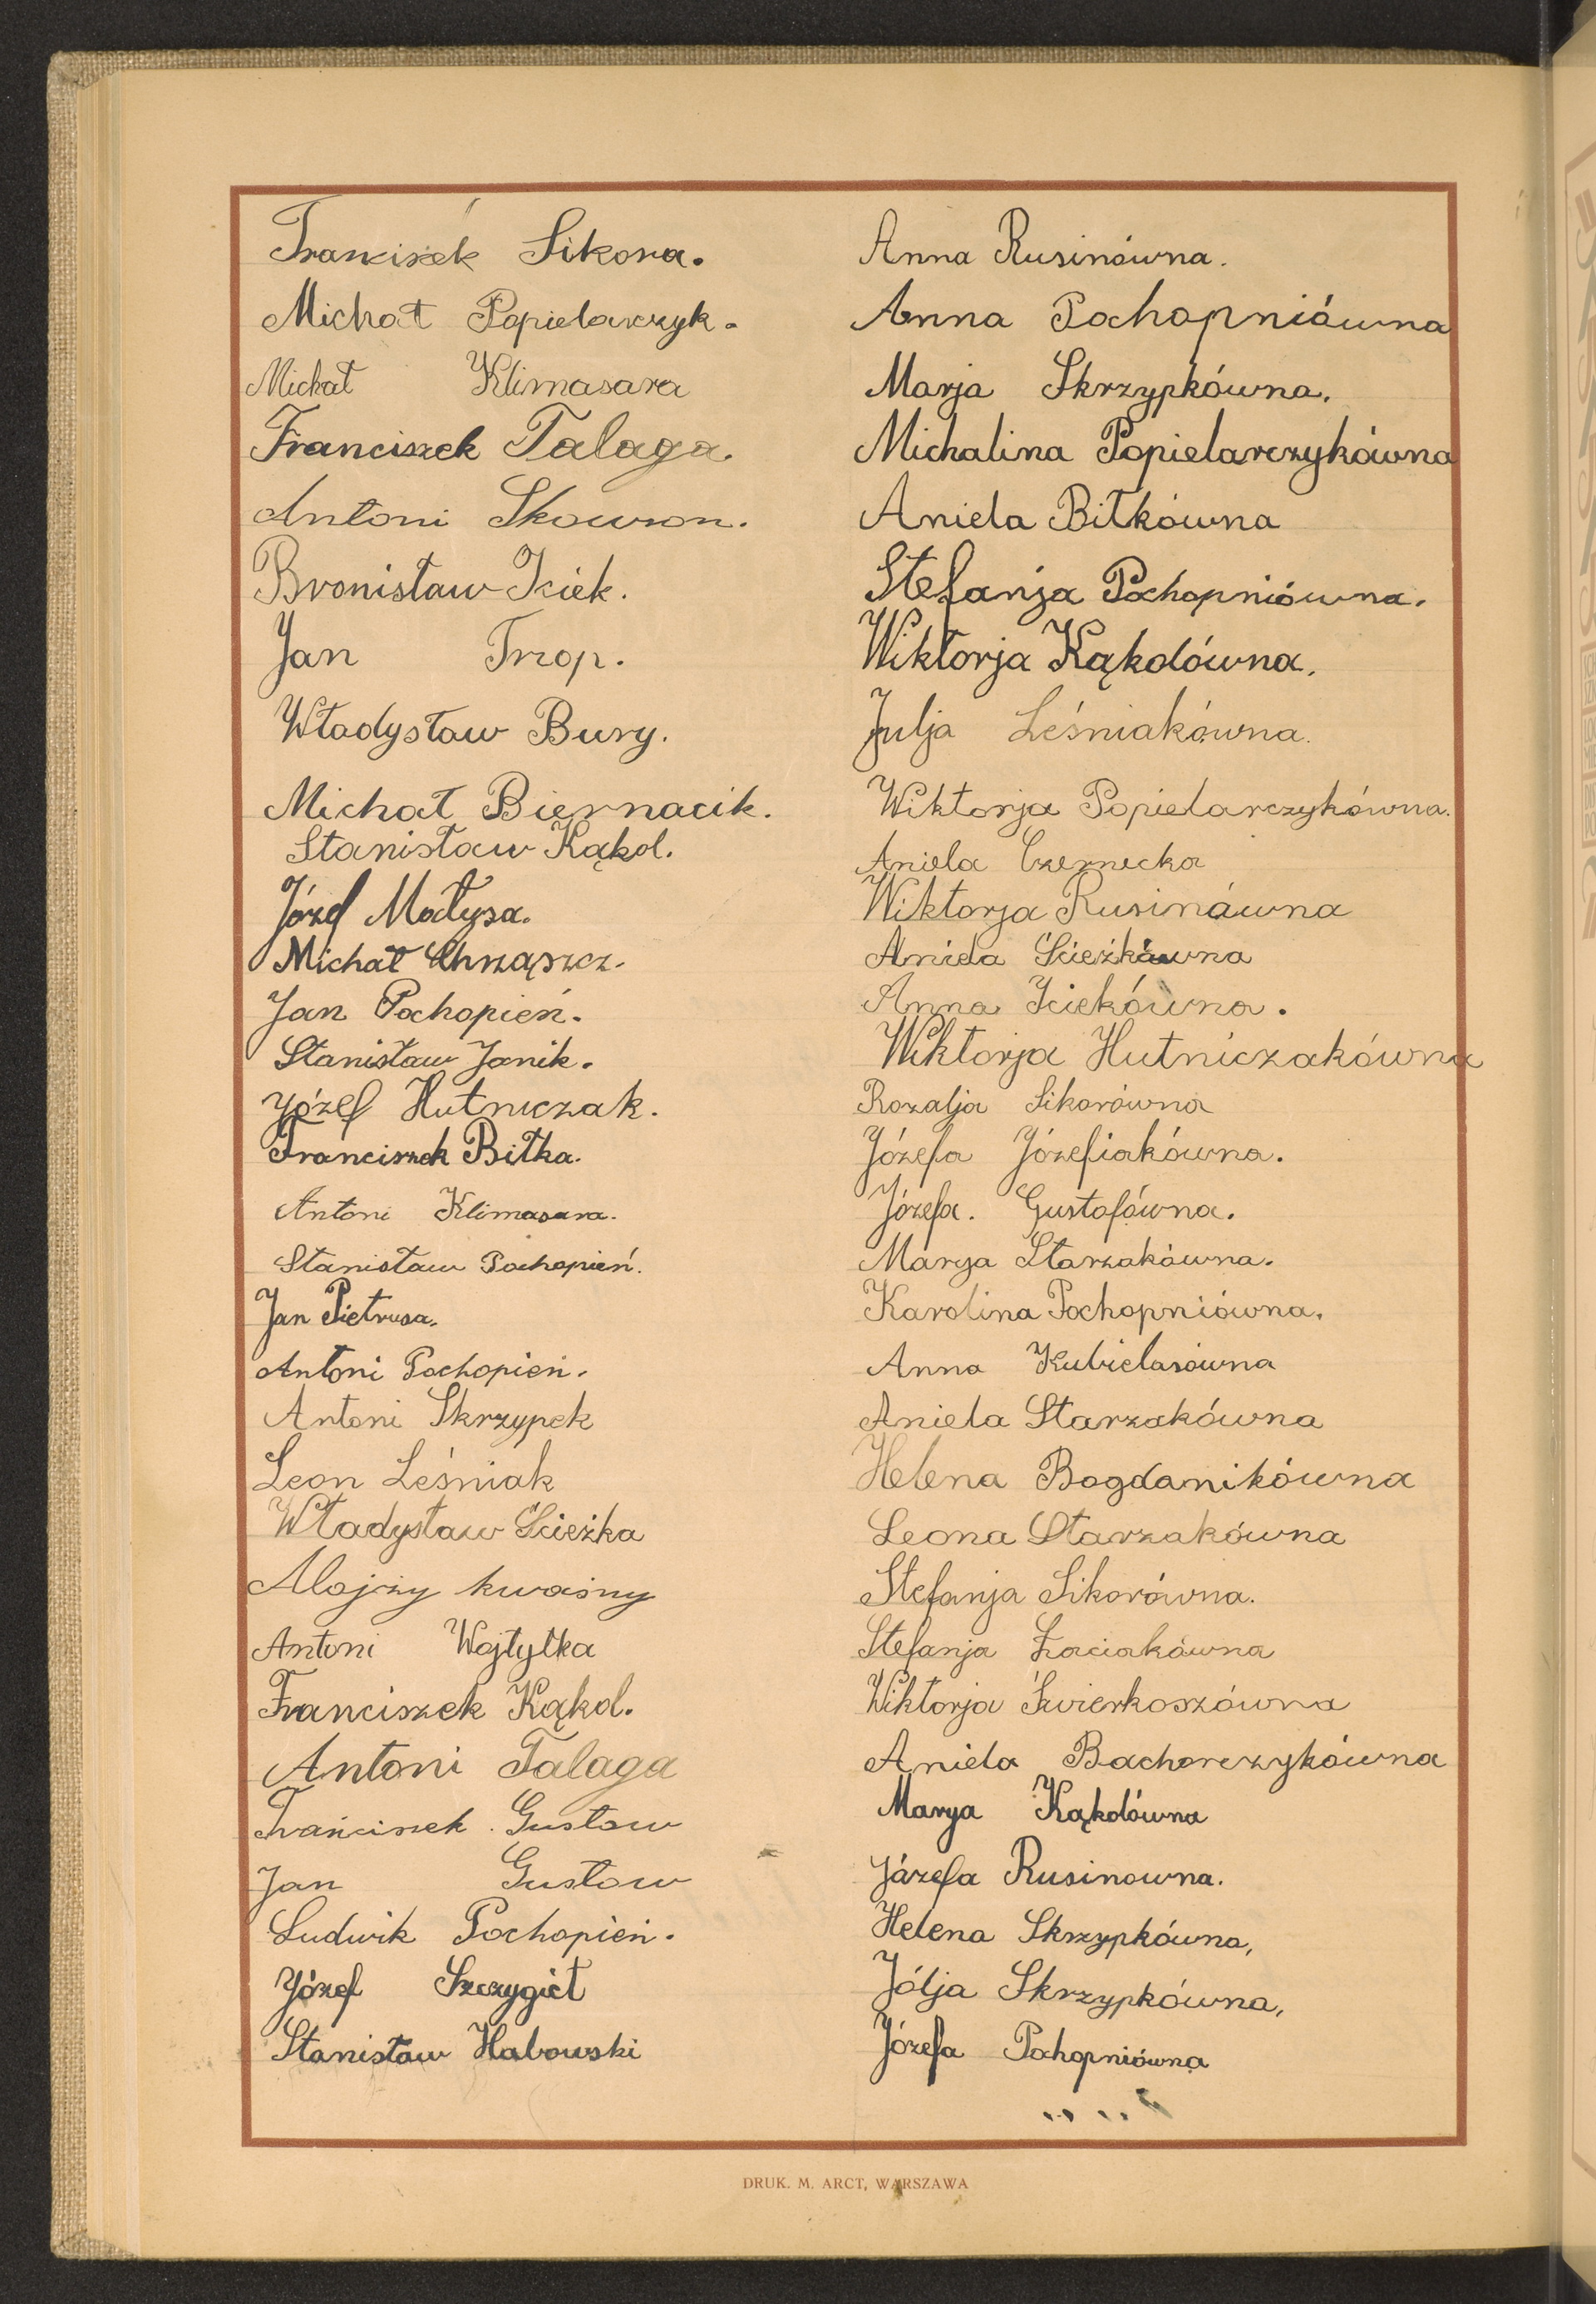 Franciszek Sikora.
Michał Popielarczyk.
Michał Klimasara
Franciszek Talaga.
Antoni Skowron.
Bronisław Iciek.
Jan Trzop.
Władysław Bury.
Michał Biernacik.
Stanisław Kąkol.
Józef Matysa.
Michał Chrząszcz.
Jan Pochopień.
Stanisław Janik.
Józef Hutniczak.
Franciszek Bitka.
Antoni Klimasara.
Stanisław Pochopień.
Jan Pietrusa.
Antoni Pochopień.
Antoni Skrzypek
Leon Leśniak
Władysław Ścieżka
Alojzy kwaśny
Antoni Wojtyłka
Franciszek Kąkol.
Antoni Talaga
Franciszek Gustaw
Jan Gustaw
Ludwik Pochopień.
Józef Szczygieł
Stanisław Habowski
Anna Rusinówna.
Anna Pochopniówna
Marja Skrzypkówna.
Michalina Popielarczykówna
Aniela Bitkówna
Stefanja Pochopniówna.
Wiktorja Kąkolówna.
Julja Leśniakówna.
Wiktorja Popielarczykówna.
Aniela Czernecka
Wiktorja Rusinówna
Aniela Ścieżkówna
Anna Iciekówna.
Wiktorja Hutniczakówna
Rozalja Sikorówna
Józefa Józefiakówna.
Józefa. Gustafówna.
Marya Starzakówna.
Karolina Pochopniówna.
Anna Kubielasówna
Aniela Starzakówna
Helena Bogdanikówna
Leona Starzakówna
Stefanja Sikorówna.
Stefanja Łaciakówna
Wiktorja Świerkoszówna
Aniela Bachorczykówna
Marya Kąkolówna
Józefa Rusinowna.
Helena Skrzypkówna,
Jólja Skrzypkówna,
Józefa Pochopniówna
DRUK. M. ARCT, WARSZAWA